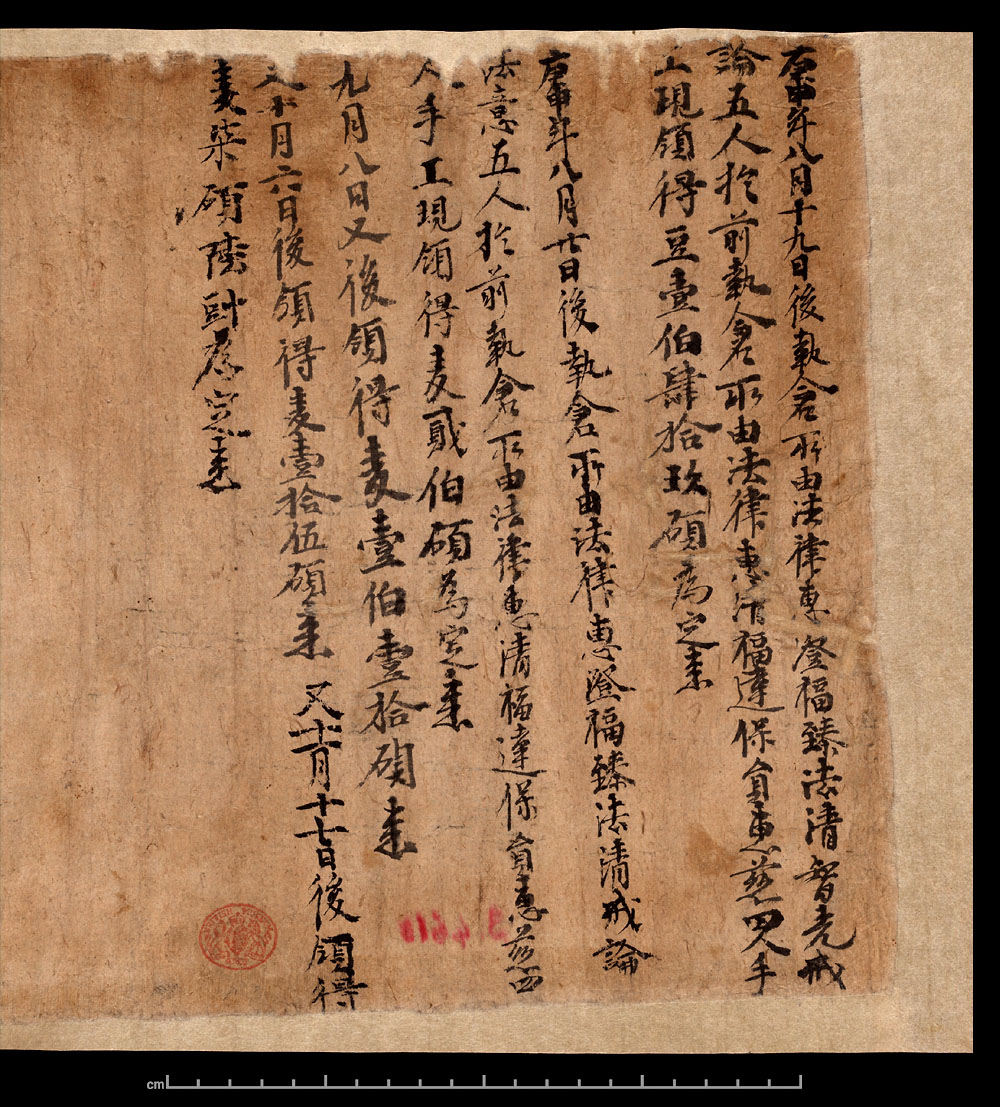 庚申年八月十九日後執倉所由法律惠澄福臻法清智光戒
論五人於前執倉所由法律惠清福達保員惠慈四人手
上現領得豆壹伯肆拾玖碩為定耒
庚申年八月廿日後執倉所由法律惠澄福臻法清戒論
法意五人於前執倉所由法律惠清福達保員惠慈四
人手上現領得麦貳伯碩為定耒
九月八日又後領得麦壹伯壹拾碩耒
又十月六日後領得麦壹拾伍碩耒 又十月十七日後領得
麦柒碩陸㪷為定耒